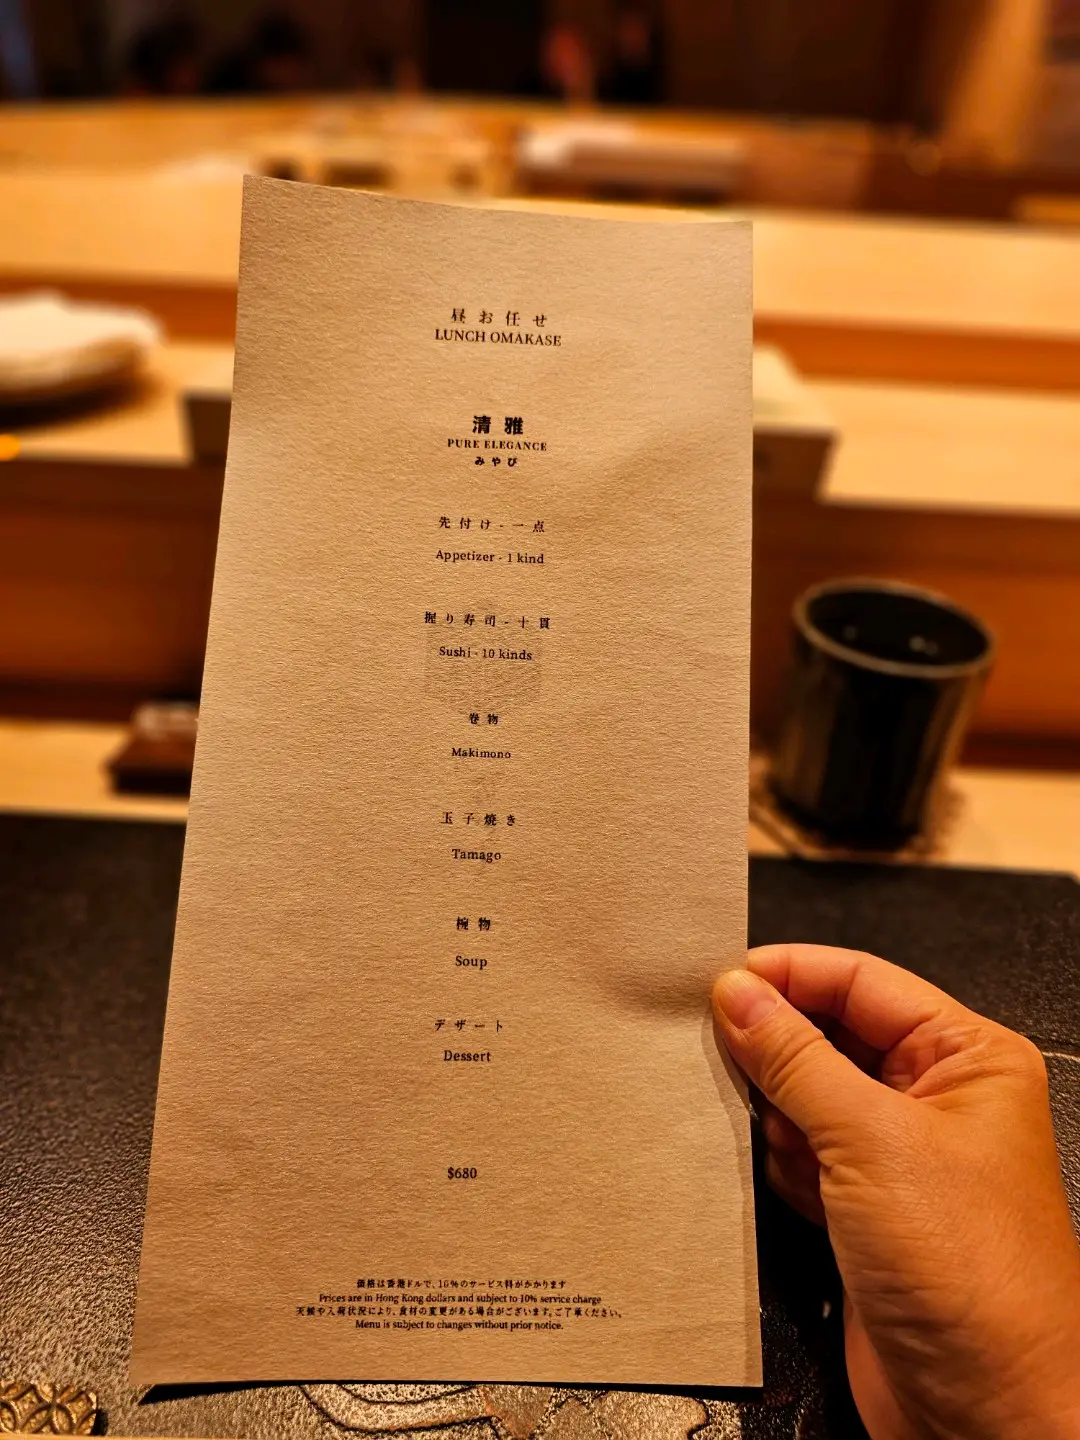 昼お任せ
LUNCH OMAKASE
清雅
PURE ELEGANCE
みやび
先付け - 一点
Appetizer - 1 kind
握り寿司 - 十貫
Sushi - 10 kinds
巻物
Makimono
玉子焼き
Tamago
椀物
Soup
デザート
Dessert
$680
価格は香港ドルで、10%のサービス料がかかります
Prices are in Hong Kong dollars and subject to 10% service charge
天候や入荷状況により、食材の変更がある場合がございます。ご了承ください。
Menu is subject to changes without prior notice.